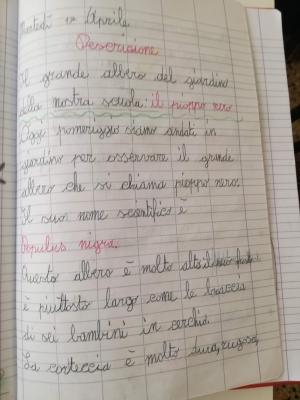 Martedì 12 Aprile
Descrizione
Il grande albero del giardino
della nostra scuola: il pioppo nero
Oggi pomeriggio siamo andati in
giardino per osservare il grande
albero che si chiama pioppo nero.
Il suo nome scientifico è
Populus nigra.
Questo albero è molto alto, il
è piuttosto largo come le braccia
di sei bambini in cerchio.
La corteccia è molto dura, rugosa,